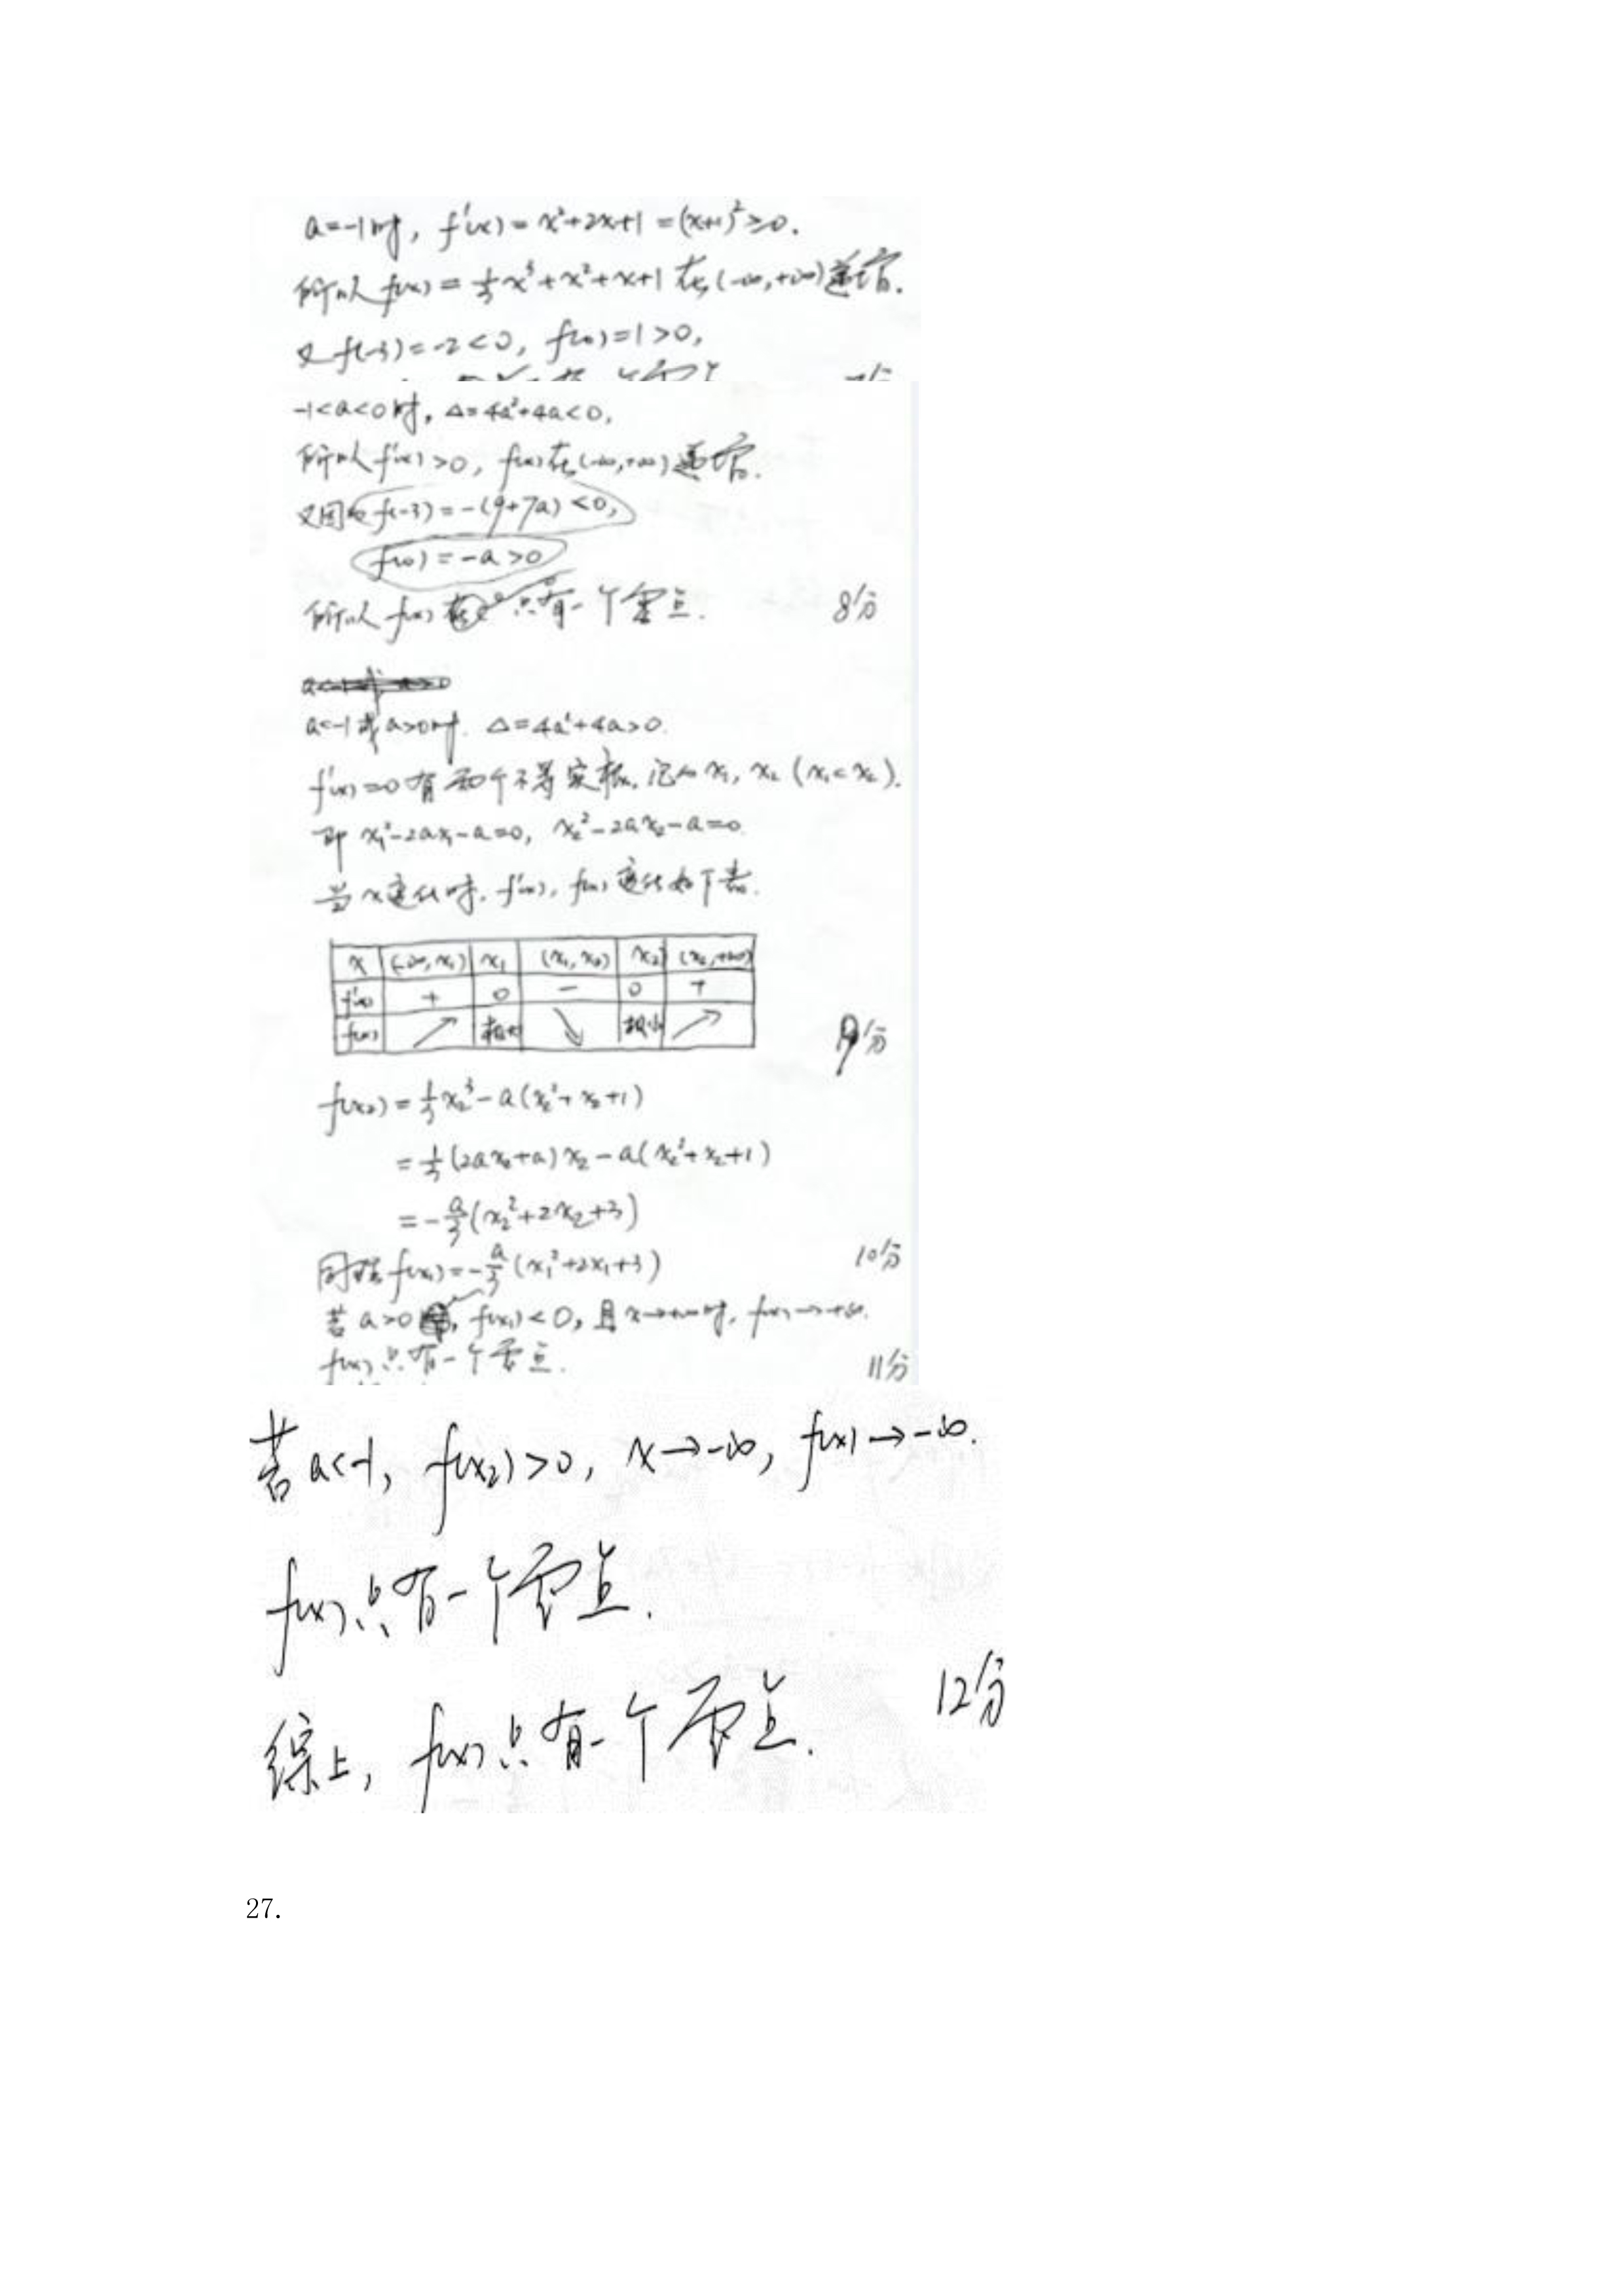 a=-1时, f'(x)=x²+2x+1=(x+1)²≥0.
所以f(x)=⅓x³+x²+x+1在(-∞,+∞)递增.
又f(-3)=-2<0, f(0)=1>0,
-1<a<0时, Δ=4a²+4a<0,
所以f'(x)>0, f(x)在(-∞,+∞)递增.
又因为f(-3)=-(9+7a)<0,
f(0)=-a>0
所以f(x)只有一个零点. 8分
a<-1或a>0时. Δ=4a²+4a>0.
f'(x)=0有两个不等实根, 记为x₁, x₂ (x₁<x₂).
即x₁²-2ax₁-a=0, x₂²-2ax₂-a=0.
当x变化时, f'(x), f(x)变化如下表.
x (-∞,x₁) x₁ (x₁,x₂) x₂ (x₂,+∞)
f'(x) + 0 - 0 +
f(x) ↗ 极大 ↘ 极小 ↗ 9分
f(x₂)=⅓x₂³-a(x₂²+x₂+1)
=⅓(2ax₂+a)x₂-a(x₂²+x₂+1)
=-a/3(x₂²+2x₂+3)
同理f(x₁)=-a/3(x₁²+2x₁+3) 10分
若a>0, f(x₁)<0, 且x→+∞时, f(x)→+∞.
f(x)只有一个零点. 11分
若a<-1, f(x₂)>0, x→-∞, f(x)→-∞.
f(x)只有一个零点.
综上, f(x)只有一个零点. 12分
27.